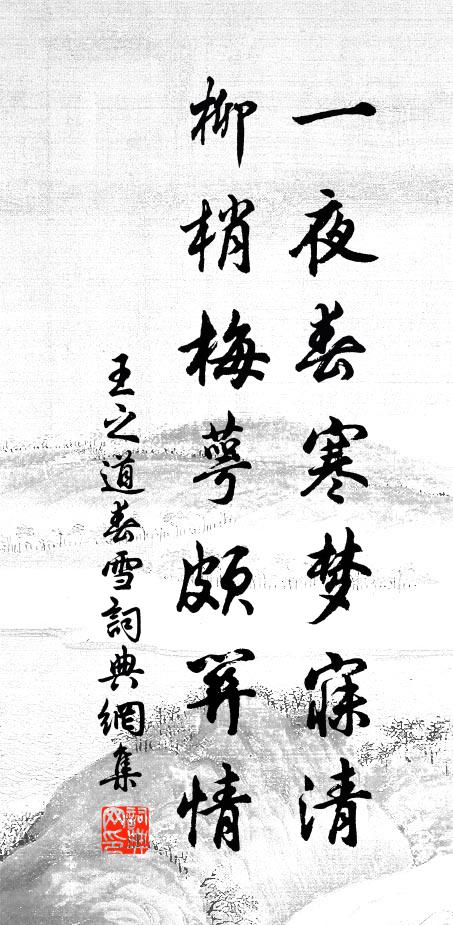 一夜春寒梦寐清
柳梢梅萼頗關情
王之道春雪詞典網集